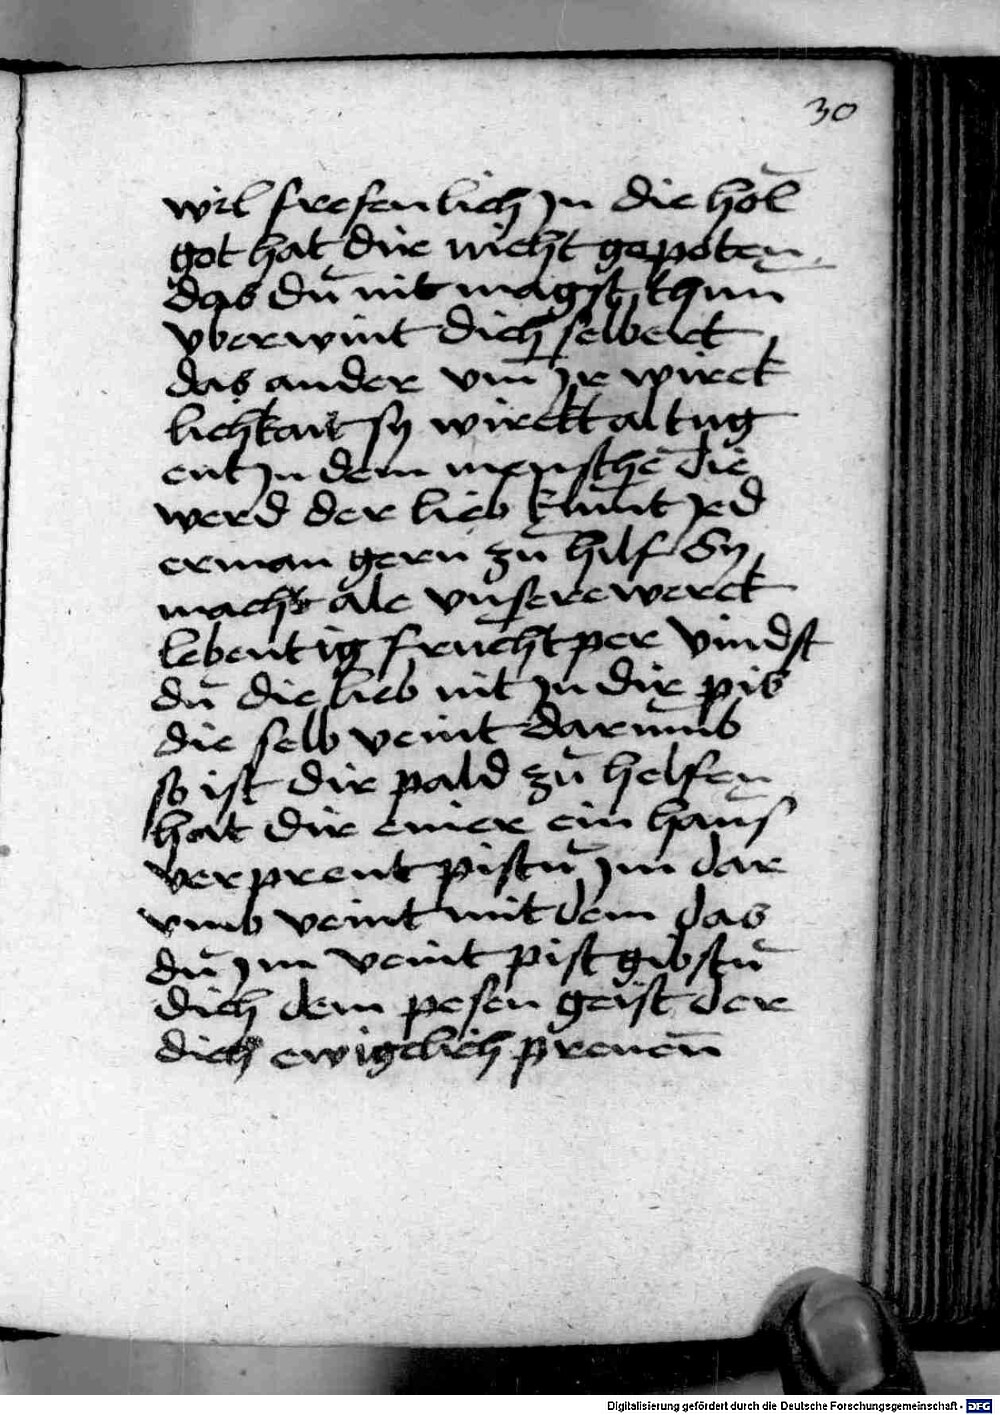 30
wil frefenlich jn die hol̄
got hat dir nicht gepoten
das dū nit magst thun
vberwint dich selbert
das ander vm̄ jr wirck
lichkait sy wirckt al tug
ent jn dem menschē die
werd der lieb kūmt jed
erman gern zū hilf Sy
macht ale vnsere werck
lebentig fruchtper vindst
dū die lieb nit jn dir pis
die selb veint darumb
so ist dir pald zū helfen
hat dir einer ein haus
verprent pistū jm dar
vmb veint mit dem das
dū jm veint pist gibstū
dich dem pesen geist der
dich ewigclich prenen̄
Digitalisierung gefördert durch die Deutsche Forschungsgemeinschaft - DFG